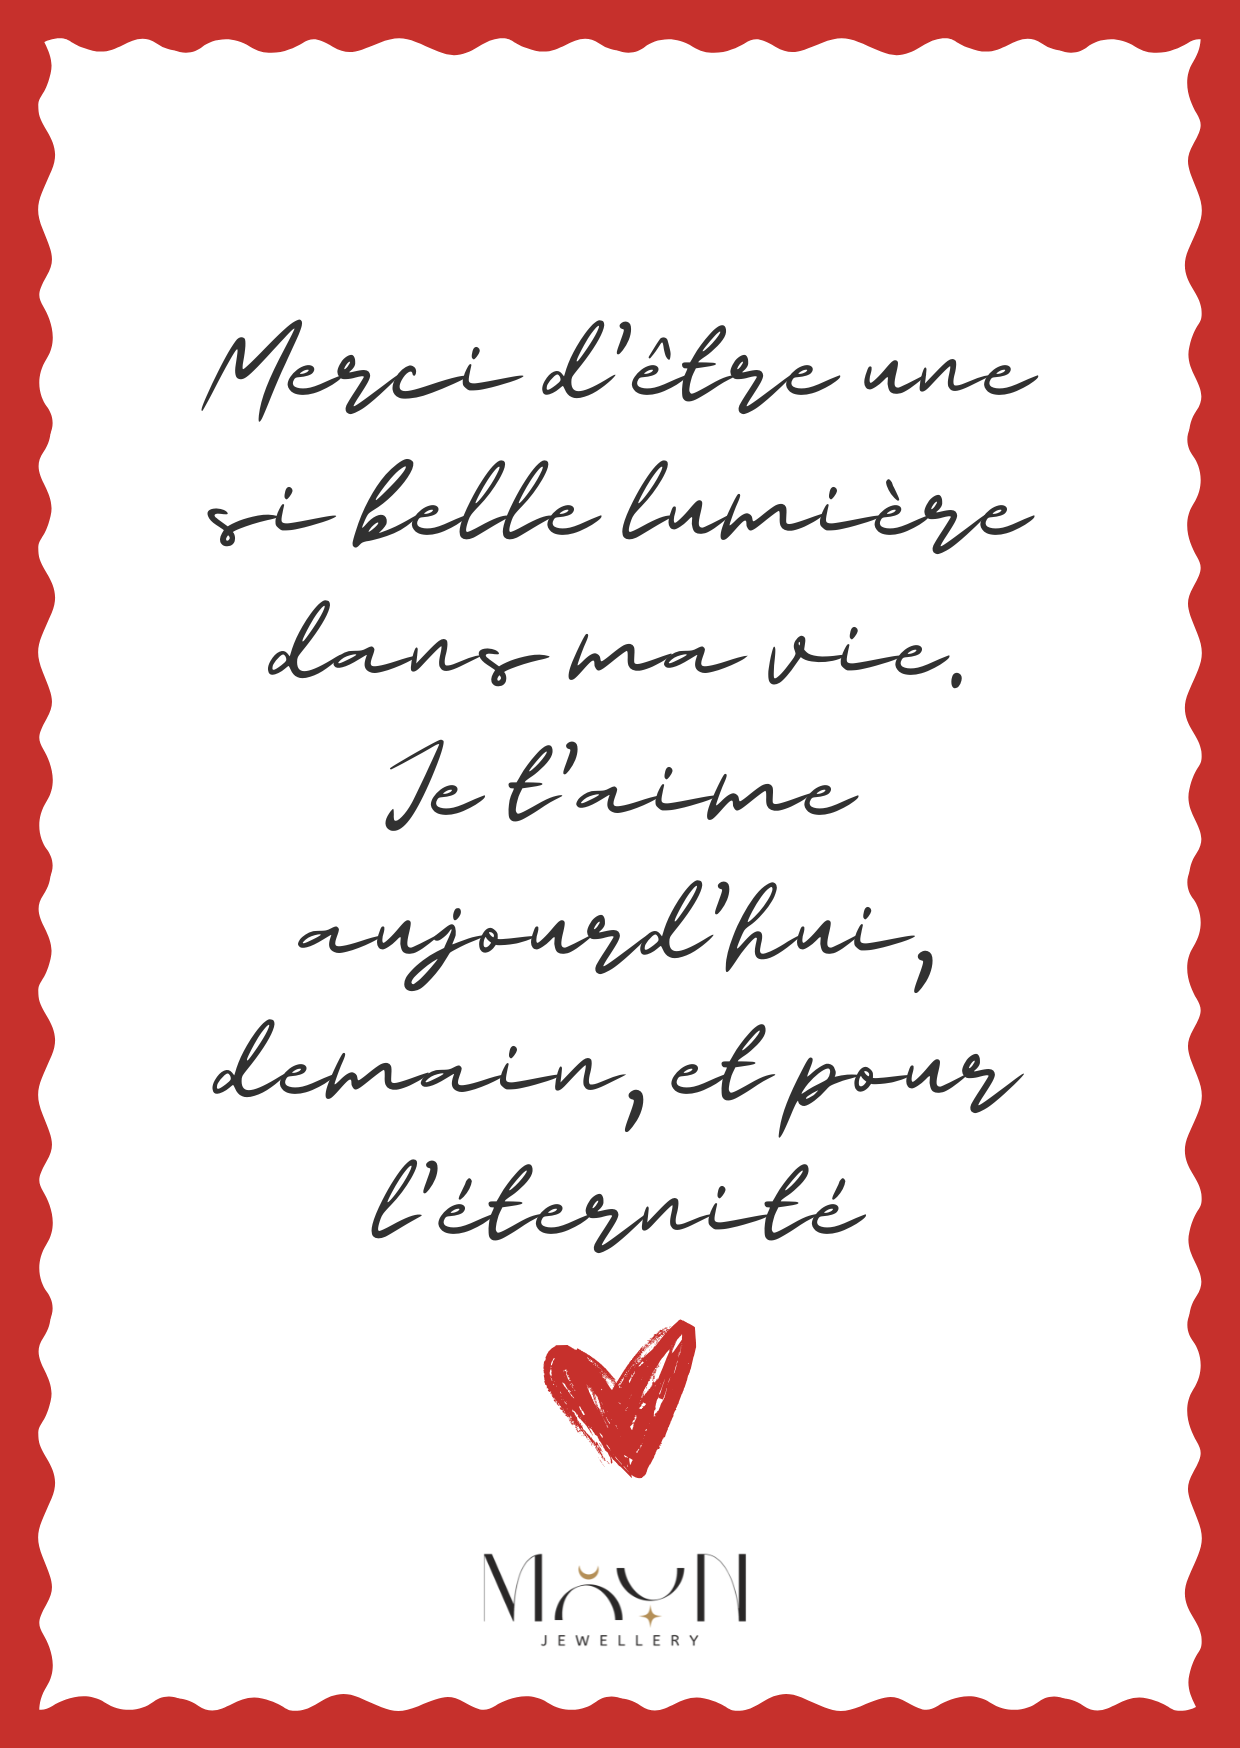 Merci d'être une
si belle lumière
dans ma vie.
Je t'aime
aujourd'hui,
demain, et pour
l'éternité
MAYN
JEWELLERY